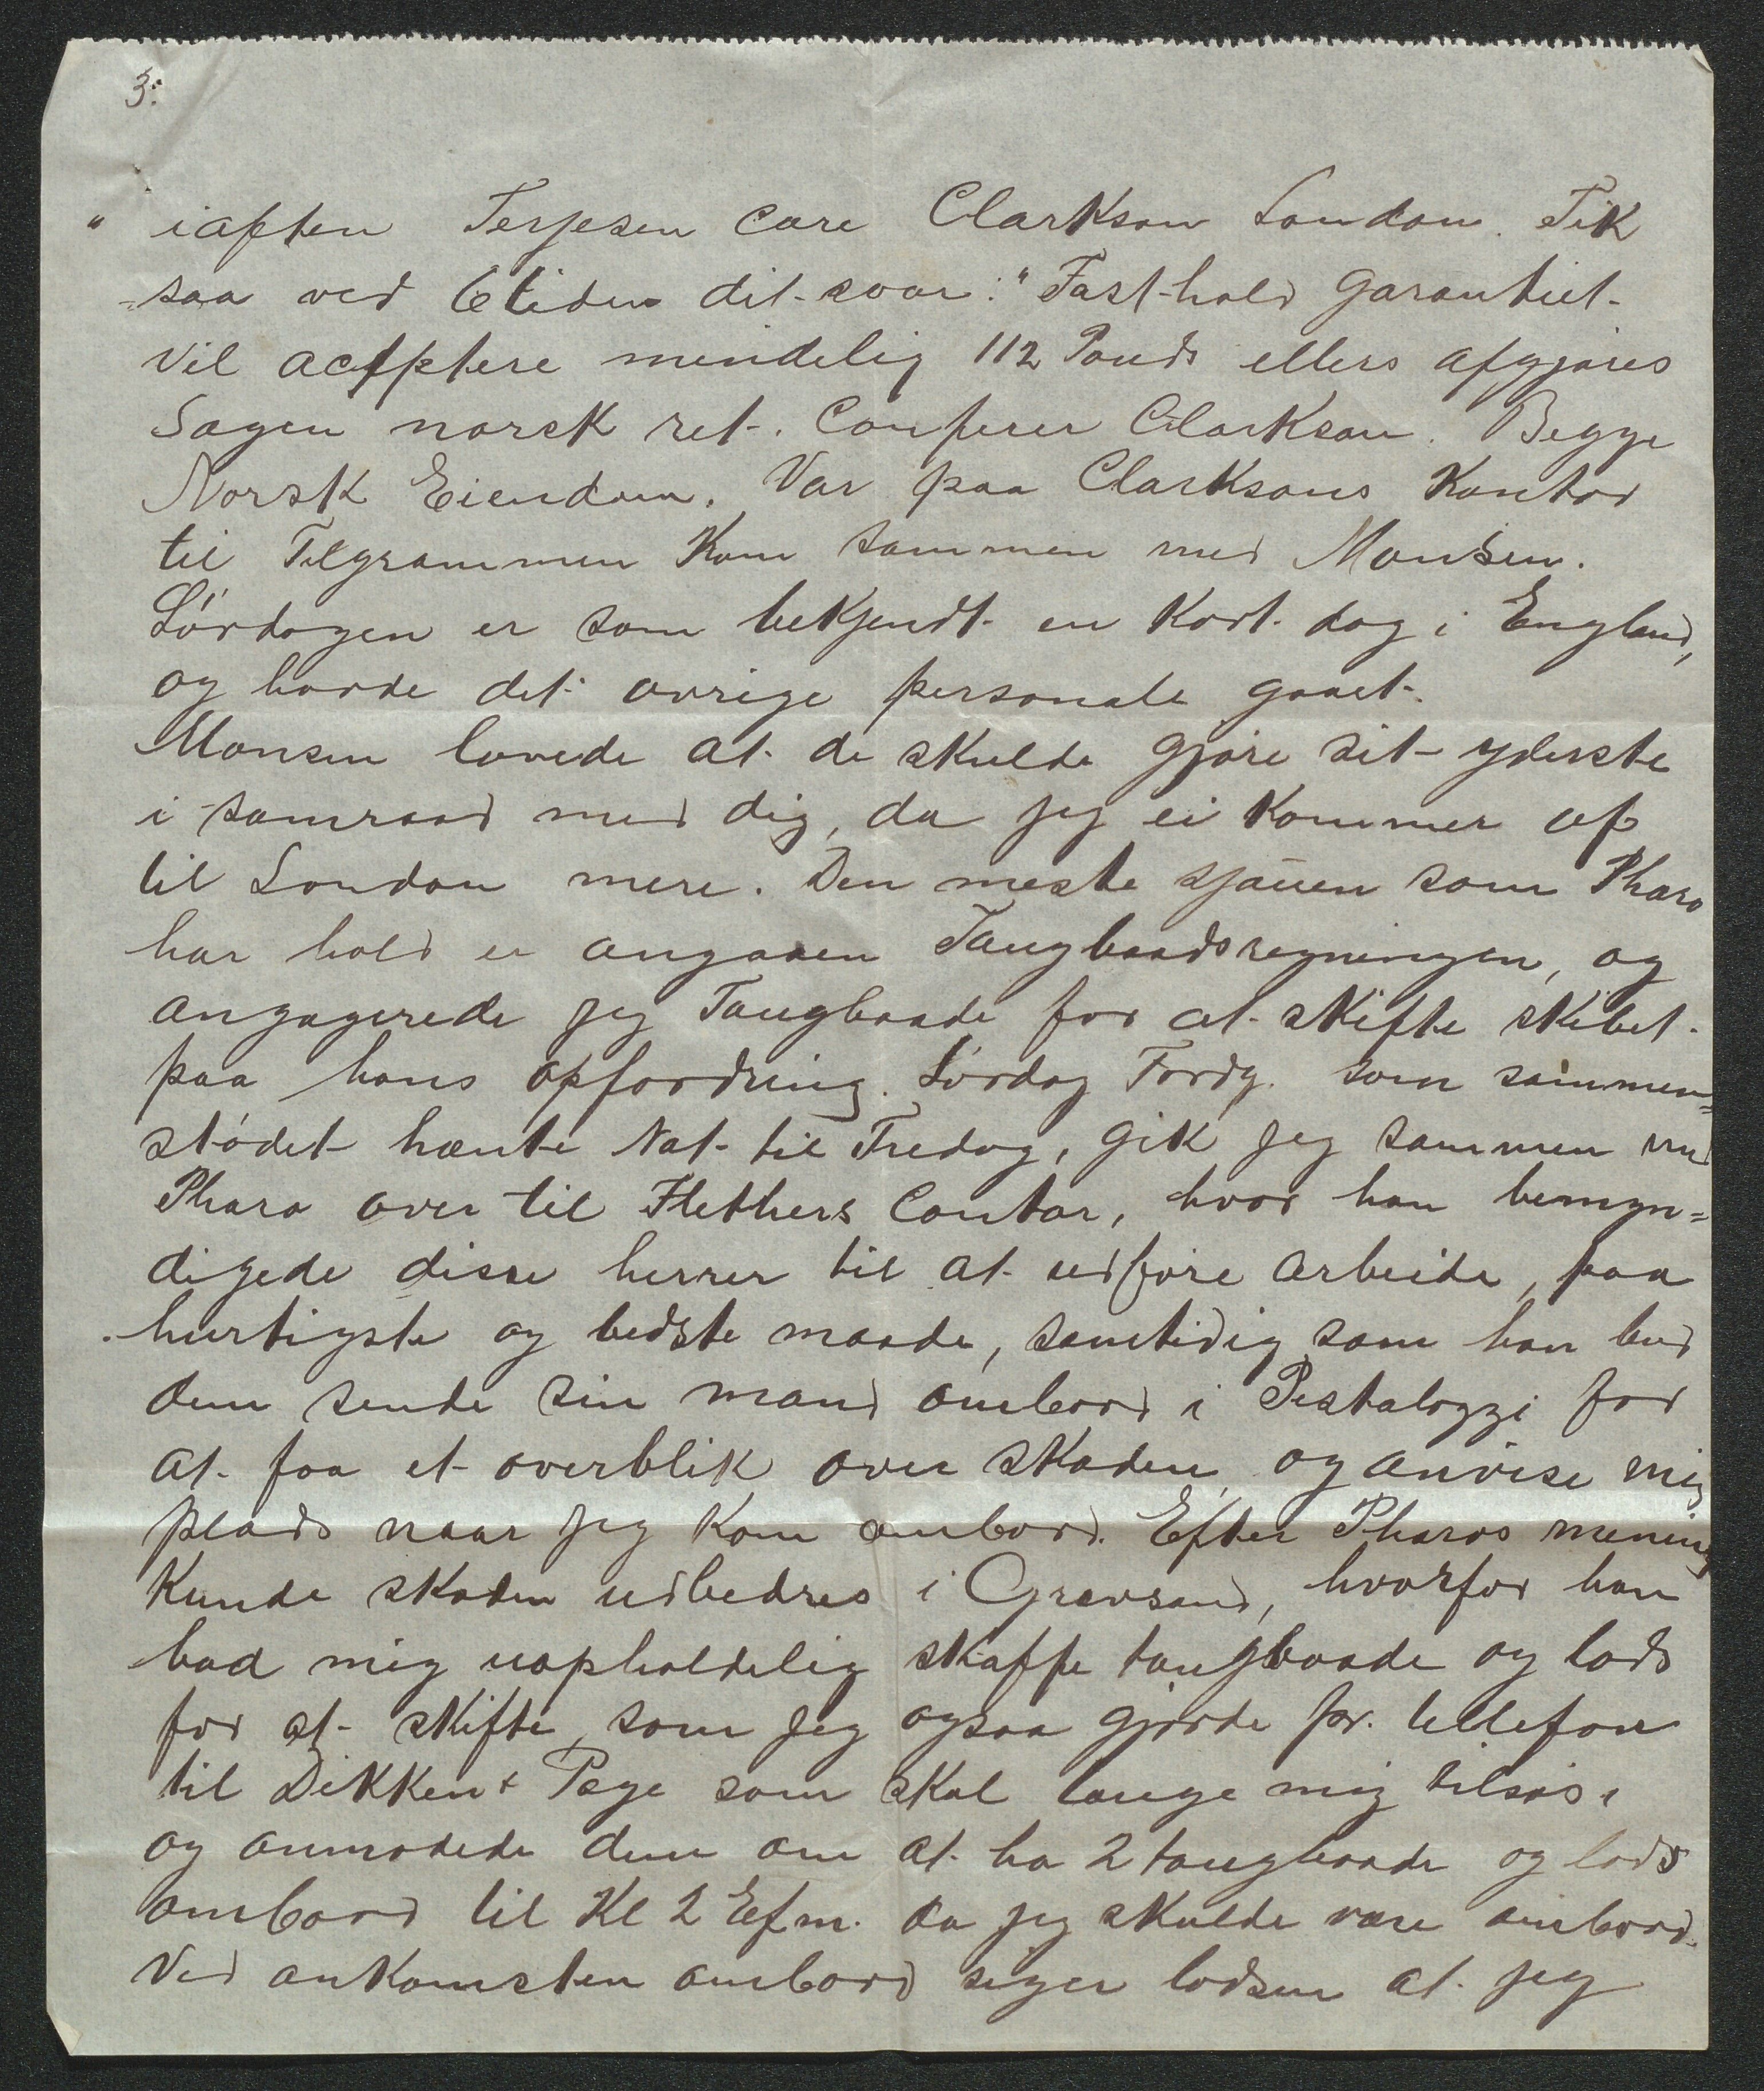 3:
" iaften Terjesen Care Clarkson London. Fik
saa ved 6tiden dit svar: "Fasthold Garantiet
vil acceptere mindelig 112 Pouds ellers afgjøres
Sagen norsk ret. Conferer Clarkson. Begge
Norsk Eiendom. Var paa Clarksons Kontor
til Telgrammen Kom sammen med Monsen.
Lørdagen er som bekjendt en Kort dag i England,
og havde det øvrige personale gaaet.
Monsen lovede at de skulde gjøre sit yderste
i samraad med dig, da jeg ei Kommer op
til London mere. Den meste sjauen som Pharo
har hold er angaaen Taugbaadsregningen, og
angagerede jeg Taugbaade for at skifte skibet
paa hans opfordring. Lørdag Fordg. som sammen=
stødet hænte Nat til Fredag, gik jeg sammen med
Pharo over til Flethers Contor, hvor han bemyn=
digede disse herrer til at udføre arbeide, paa
hurtigste og bedste maade, samtidig som han bad
dem sende sin mand ombord i Pestalozzi for
at faa et overblik over skaden, og anvise mig
plads naar jeg Kom ombord. Efter Pharos mening
Kunde skaden udbedres i Gravsand, hvorfor han
bad mig uopholdelig skaffe taugbaade og lods
for at skifte, som jeg ogsaa gjorde pr. tellefon
til Dikken & Page som skal tauge mig tilsøs,
og anmodede dem om at ha 2 taugbaade og lods
ombord til Kl 2 Efm. da jeg skulde være ombord.
Ved ankomsten ombord siger lodsen at jeg